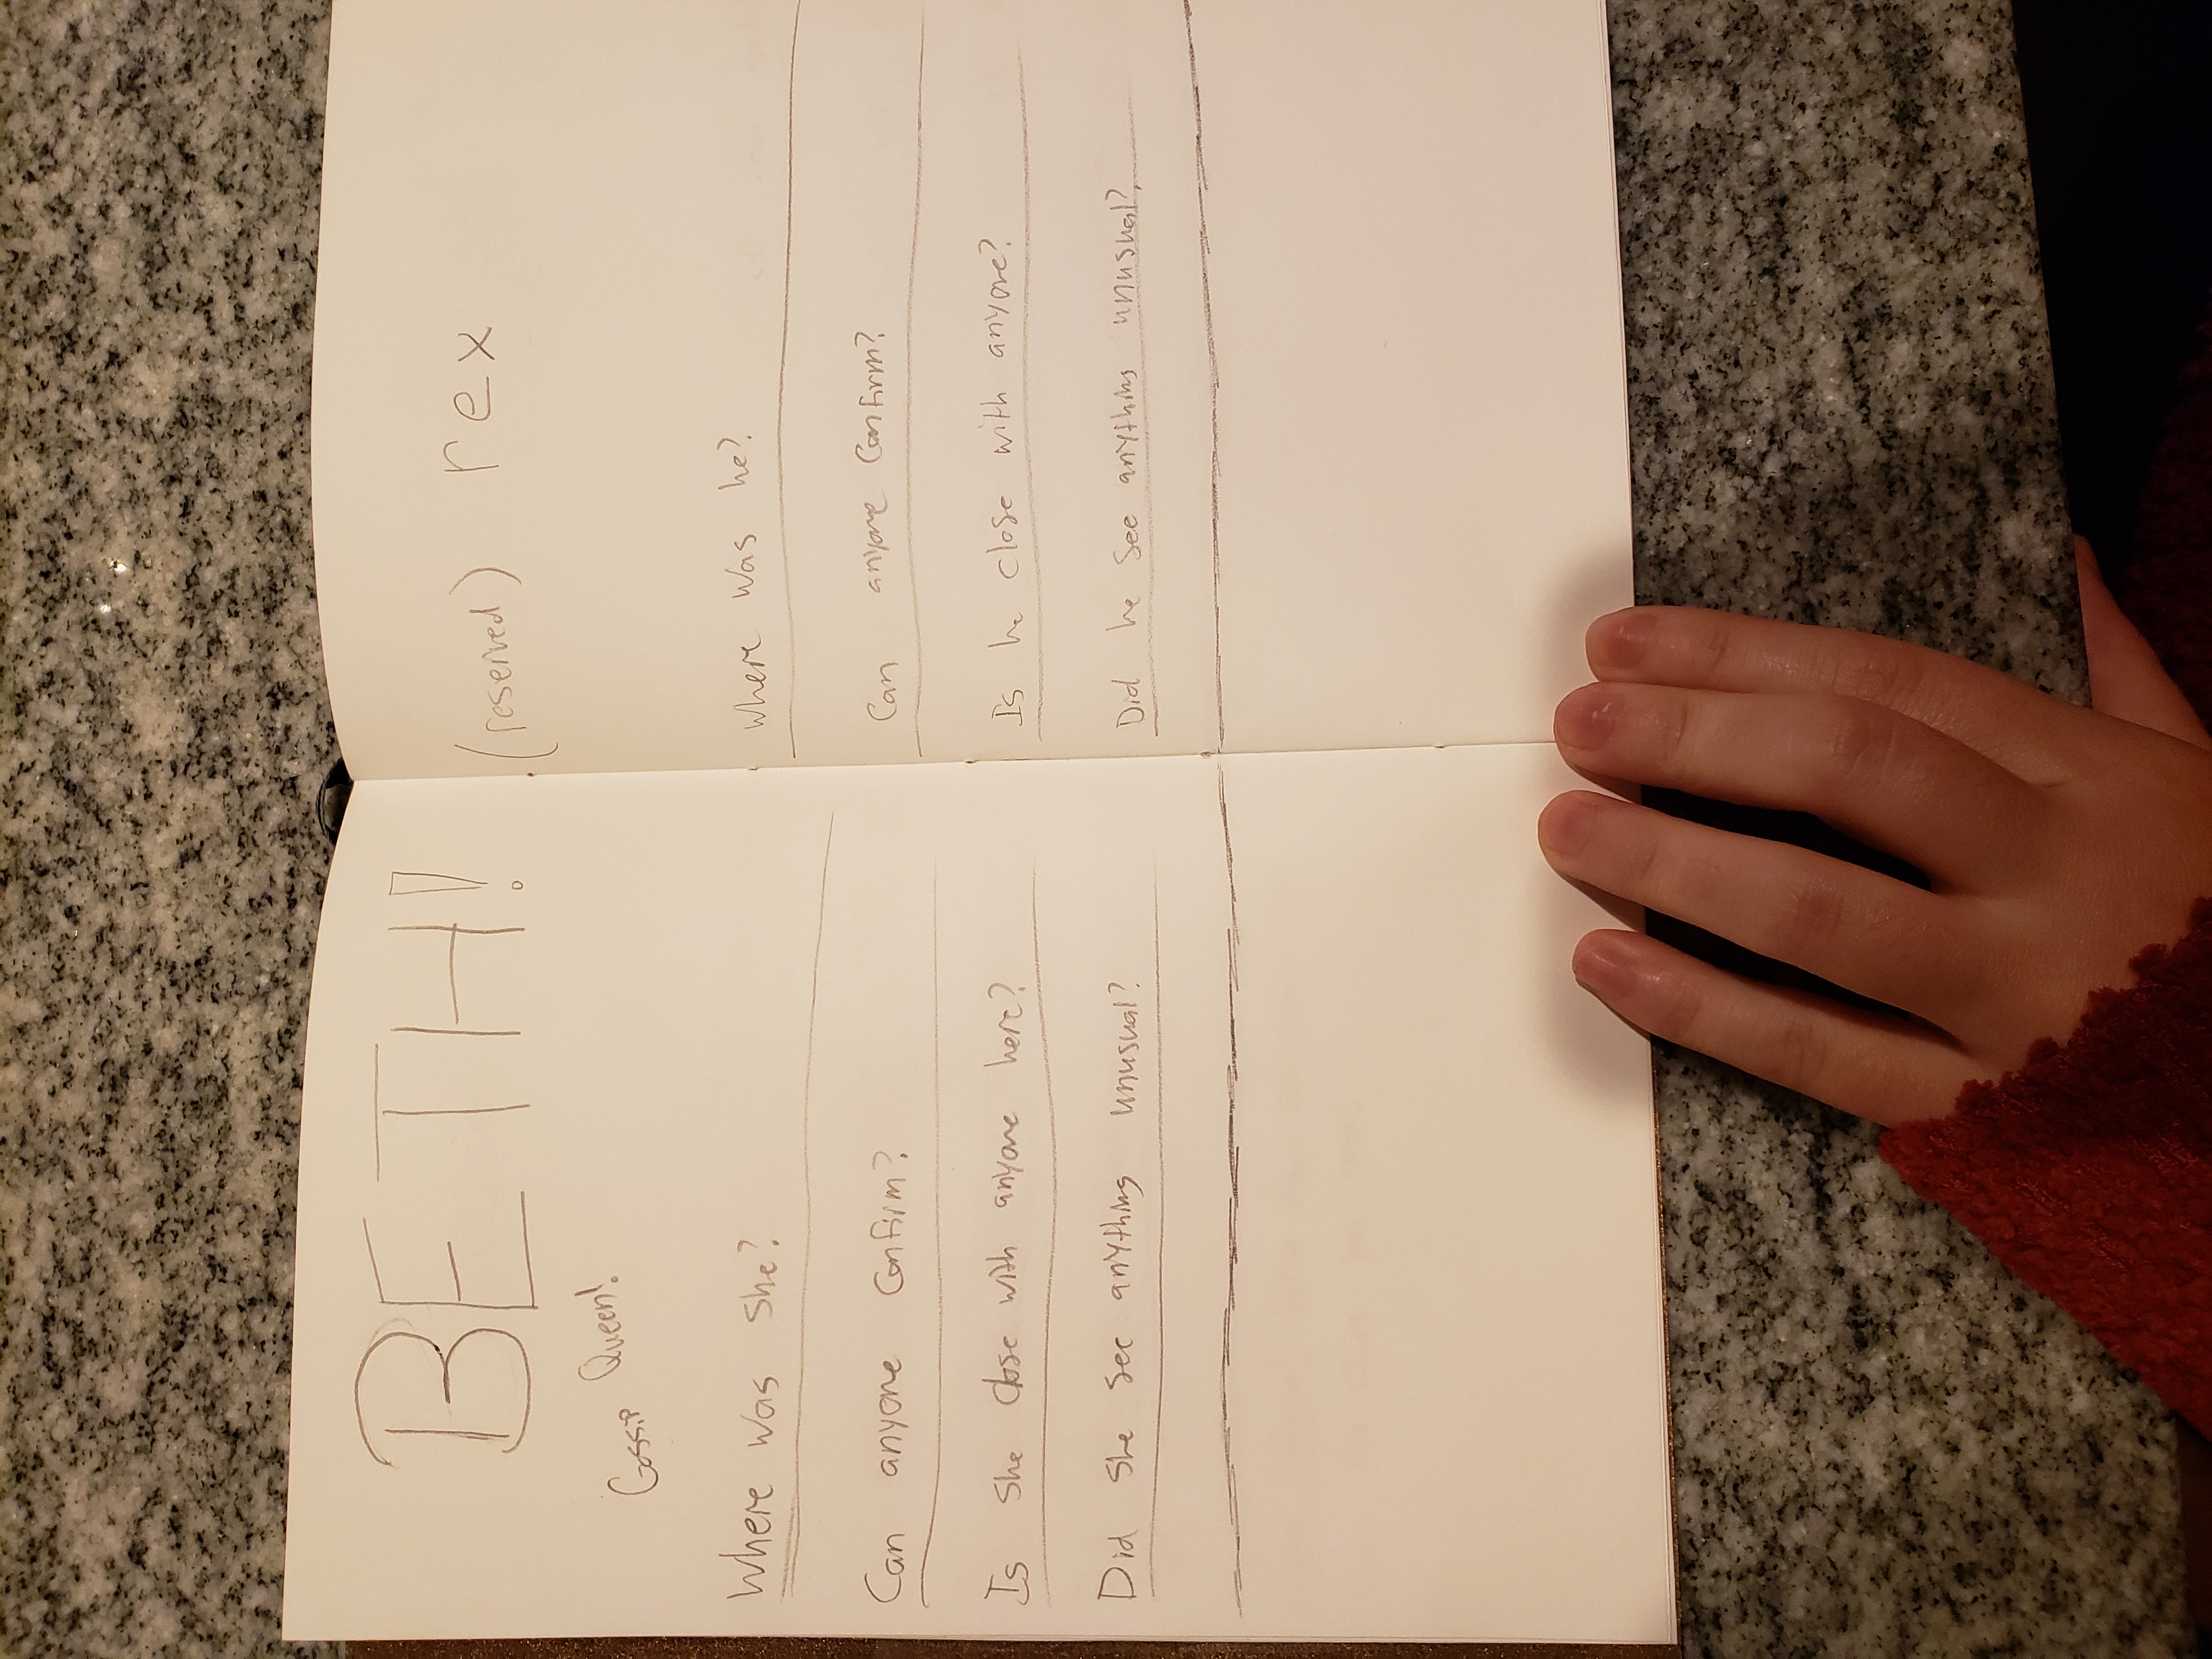 BETH!
Gossip Queen!
Where was she?
Can anyone confirm?
Is she close with anyone here?
Did she see anything unusual?
(reserved) rex
where was he?
Can anyone confirm?
Is he close with anyone?
Did he see anything unusual?